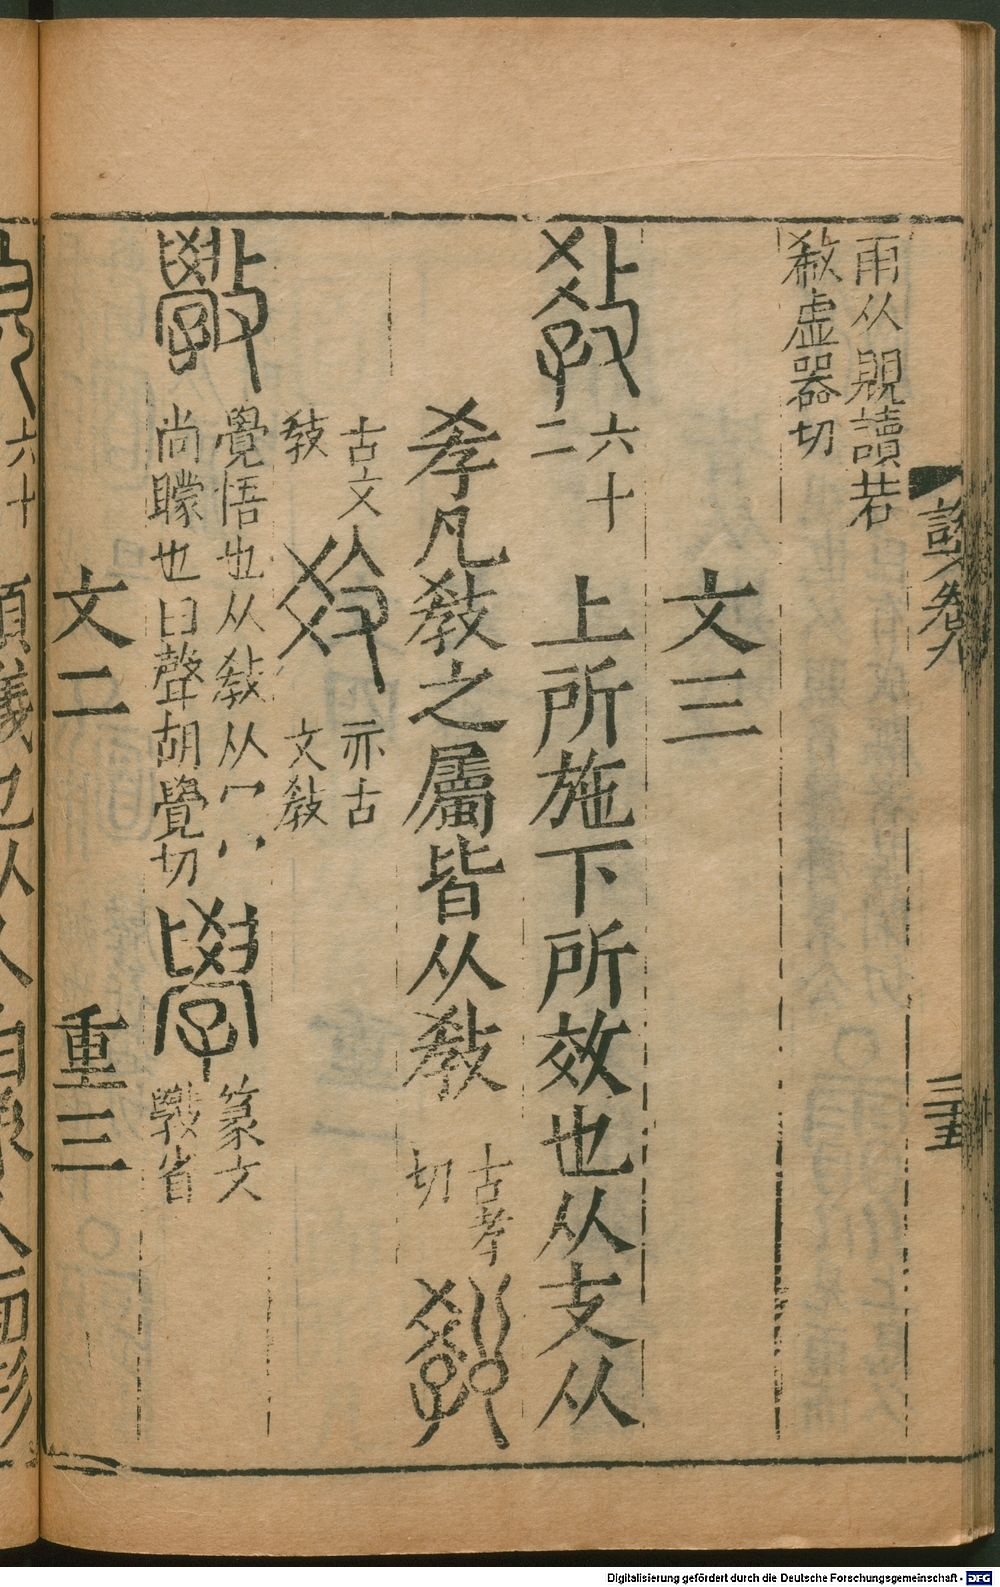 雨从覞讀若
欷虛器切
文三
敎
六十
二
上所施下所效也从支从
孝凡敎之屬皆从敎
古孝
切
古文
敎
亦古
文敎
斆
覺悟也从敎从冖冖
尚矇也臼聲胡覺切
學
篆文
斆省
文二
重三
卷九
二十五
六十
Digitalisierung gefördert durch die Deutsche Forschungsgemeinschaft - DFG